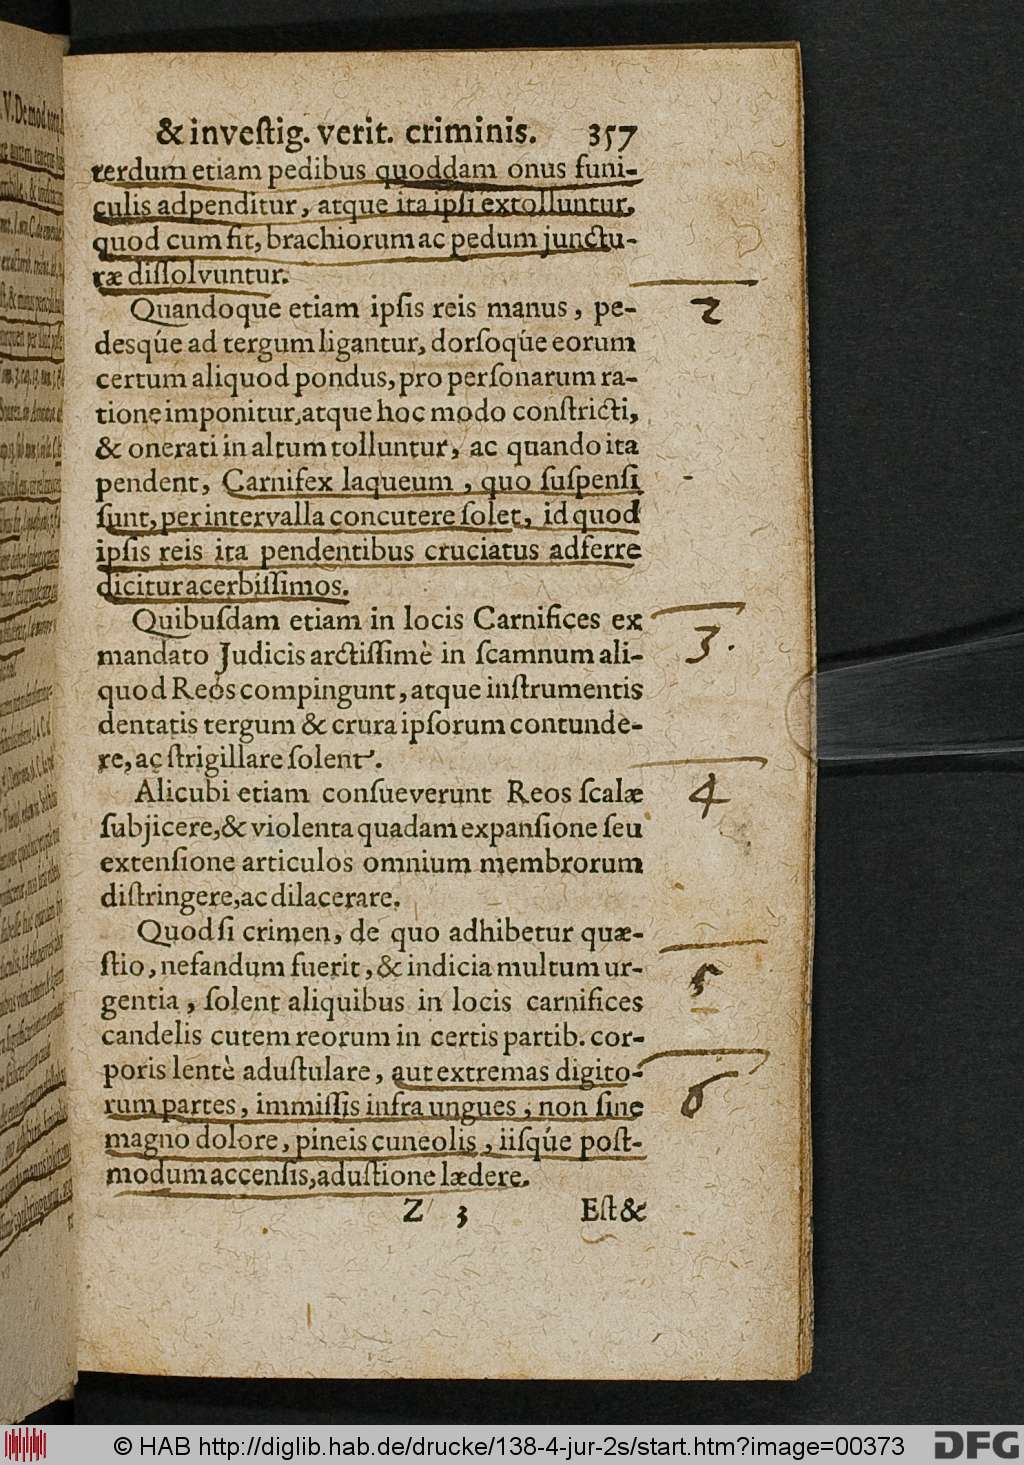 & inveſtig. verit. criminis. 357
terdum etiam pedibus quoddam onus funi-
culis adpenditur, atque ita ipſi extolluntur,
quod cum fit, brachiorum ac pedum junctu-
ræ diſſolvuntur.
Quandoque etiam ipſis reis manus, pe-
desq́ue ad tergum ligantur, dorſoq́ue eorum
certum aliquod pondus, pro perſonarum ra-
tione imponitur, atque hoc modo conſtricti,
& onerati in altum tolluntur, ac quando ita
pendent, Carnifex laqueum, quo ſuſpenſi
ſunt, per intervalla concutere ſolet, id quod
ipſis reis ita pendentibus cruciatus adferre
dicitur acerbiſſimos.
Quibuſdam etiam in locis Carnifices ex
mandato Judicis arctiſſimè in ſcamnum ali-
quod Reos compingunt, atque inſtrumentis
dentatis tergum & crura ipſorum contunde-
re, ac ſtrigillare ſolent.
Alicubi etiam conſueverunt Reos ſcalæ
ſubjicere, & violenta quadam expanſione ſeu
extenſione articulos omnium membrorum
diſtringere, ac dilacerare.
Quod ſi crimen, de quo adhibetur quæ-
ſtio, nefandum fuerit, & indicia multum ur-
gentia, ſolent aliquibus in locis carnifices
candelis cutem reorum in certis partib. cor-
poris lentè aduſtulare, aut extremas digito-
rum partes, immiſſis infra ungues, non ſine
magno dolore, pineis cuneolis, iisq́ue poſt-
modum accenſis, aduſtione lædere.
Z 3 Eſt &
2
3.
4
5
6
© HAB http://diglib.hab.de/drucke/138-4-jur-2s/start.htm?image=00373
DFG